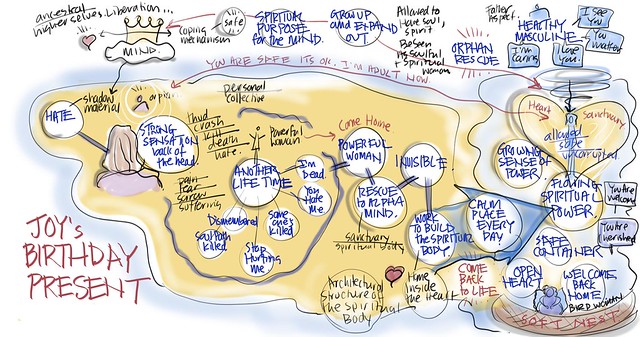 ancestral
higher selves. Liberation...
MIND.
Coping
mechanism
safe
SPIRITUAL
PURPOSE
FOR THE MIND.
GROW UP
AND EXPAND
OUT
Allowed to
Have Soul,
Spirit
Be seen
as soulful
+ Spiritual
Woman
ORPHAN
RESCUE
Father
Aspect.
HEALTHY
MASCULINE
I see
You
You
Matters
I'm
caring
I Love
You.
YOU ARE SAFE ITS OK. I'M ADULT NOW.
HATE
shadow
material
orphan
STRONG
SENSATION
back of
the head.
personal
collective
thud
crash
kill
death
hate.
pain
fear
sorrow
suffering
Powerful
woman
ANOTHER
LIFE TIME
I'm
Dead.
You
Hate Me
Someone's
killed
Stop
Hurting
Me
Dismembered
Soul Path
killed
Come Home.
POWERFUL
WOMAN
RESCUE
to ALPHA
MIND.
sanctuary
spiritual body
INVISIBLE
WORK
TO BUILD
THE SPIRITUAL
BODY.
CALM
PLACE
EVERY
DAY
Architectural
Structure of
the Spiritual
Body
Home
Inside
the Heart
COME
BACK
TO LIFE
Heart
Sanctuary
allowed
safe
uncorrupted.
GROWING
SENSE OF
POWER.
FLOWING
SPIRITUAL
POWER.
You Are
Welcome
You Are
Cherished
SAFE
CONTAINER
OPEN
HEART
WELCOME
BACK
HOME
BIRD WOMAN
SOFT NEST
JOY's
BIRTHDAY
PRESENT